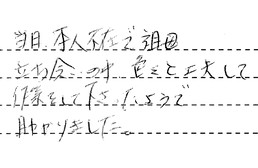 当日、本人不在で祖母
立ち会いの中、色々と工夫して
作業をして下さったようで
助かりました。